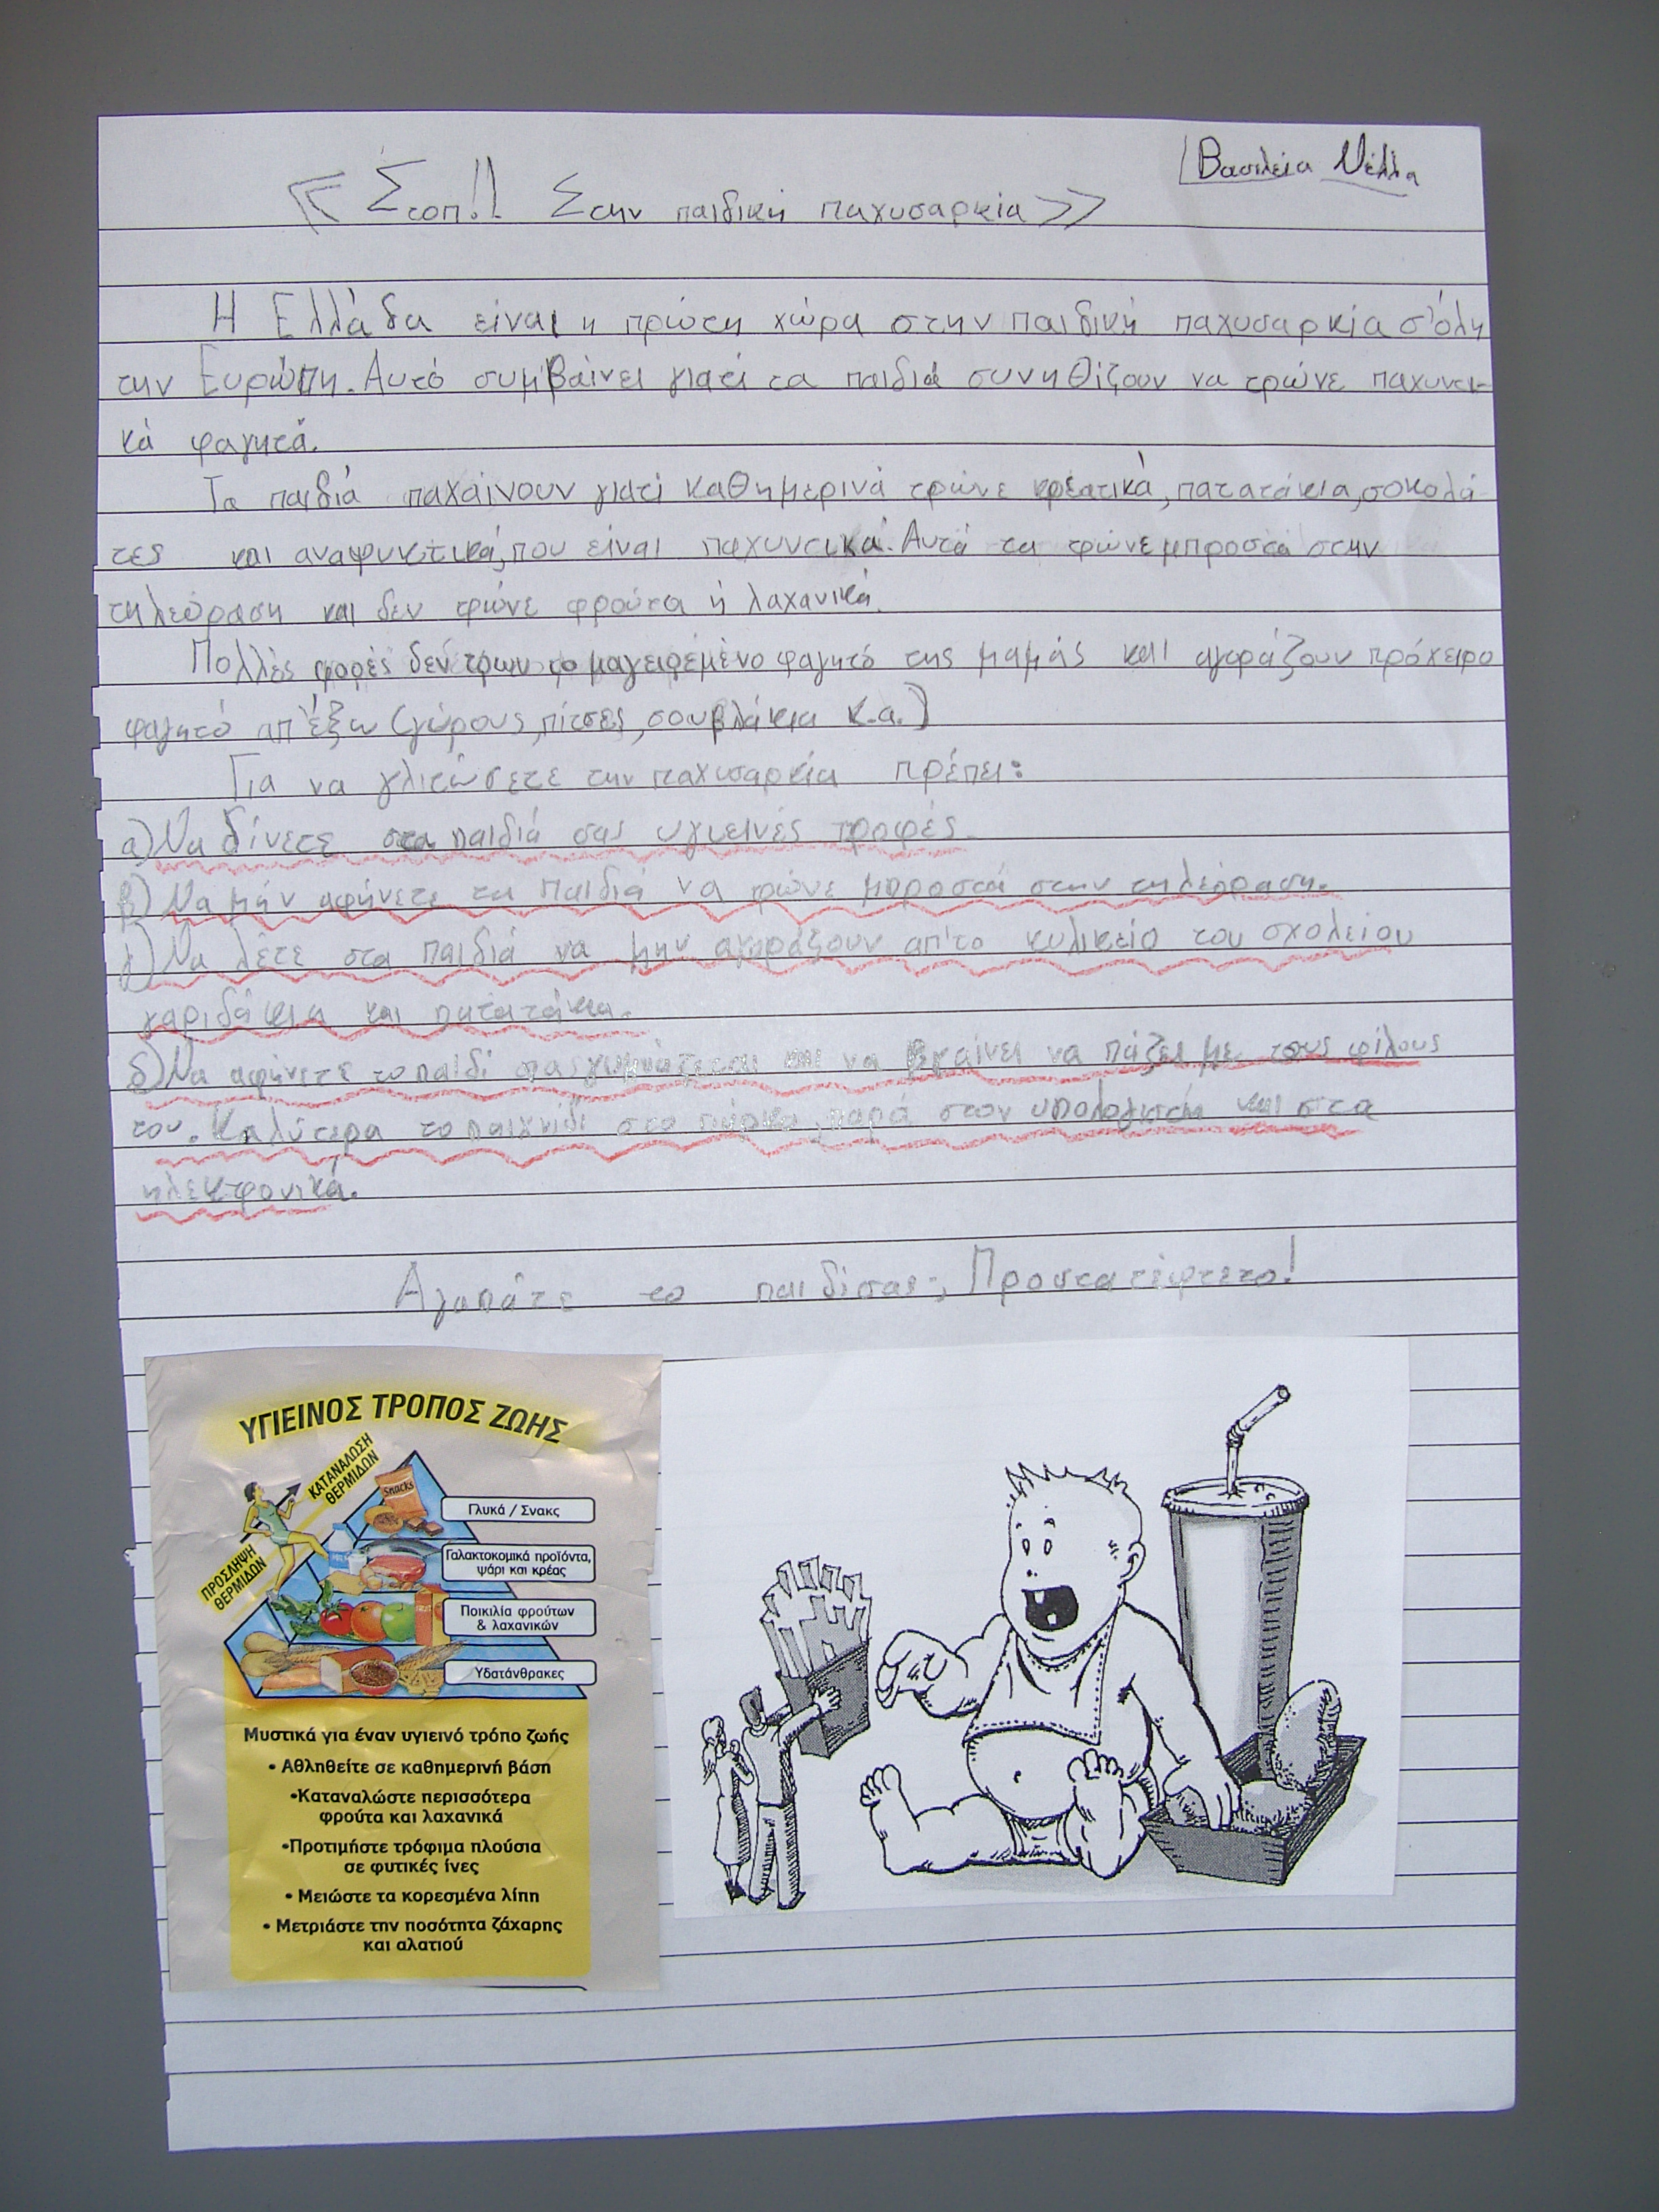 Βασιλεία Νέλλη
<< Στοπ!! Στην παιδική παχυσαρκία >>
Η Ελλάδα είναι η πρώτη χώρα στην παιδική παχυσαρκία σ'όλη
την Ευρώπη. Αυτό συμβαίνει γιατί τα παιδιά συνηθίζουν να τρώνε παχυντι-
κά φαγητά.
Τα παιδιά παχαίνουν γιατί καθημερινά τρώνε κρέατικά, πατατάκια, σοκολά-
τες και αναψυκτικά, που είναι παχυντικά. Αυτά τα τρώνε μπροστά στην
τηλεόραση και δεν τρώνε φρούτα ή λαχανικά.
Πολλές φορές δεν τρων το μαγειρεμένο φαγητό της μαμάς και αγοράζουν πρόχειρο
φαγητό απ'έξω (γύρους, πίτσες, σουβλάκια κ.α.)
Για να γλιτώσετε την παχυσαρκία πρέπει:
α) Να δίνετε στα παιδιά σας υγιεινές τροφές.
β) Να μήν αφήνετε τα παιδιά να τρώνε μπροστά στην τηλεόραση.
γ) Να λέτε στα παιδιά να μην αγοράζουν απ'το κυλικείο του σχολείου
γαριδάκια και πατατάκια.
δ) Να αφήνετε το παιδί σας γυμνάζεται και να βγαίνει να παίζει με τους φίλους
του. Καλύτερα το παιχνίδι στο πάρκο, παρά στον υπολογιστή και στα
ηλεκτρονικά.
Αγαπάτε το παιδί σας; Προστατέψτε το!
ΥΓΙΕΙΝΟΣ ΤΡΟΠΟΣ ΖΩΗΣ
ΚΑΤΑΝΑΛΩΣΗ
ΘΕΡΜΙΔΩΝ
ΠΡΟΣΛΗΨΗ
ΘΕΡΜΙΔΩΝ
Snacks
Γλυκά / Σνακς
Γαλακτοκομικά προϊόντα,
ψάρι και κρέας
Ποικιλία φρούτων
& λαχανικών
Υδατάνθρακες
Μυστικά για έναν υγιεινό τρόπο ζωής
• Αθληθείτε σε καθημερινή βάση
•Καταναλώστε περισσότερα
φρούτα και λαχανικά
•Προτιμήστε τρόφιμα πλούσια
σε φυτικές ίνες
• Μειώστε τα κορεσμένα λίπη
• Μετριάστε την ποσότητα ζάχαρης
και αλατιού